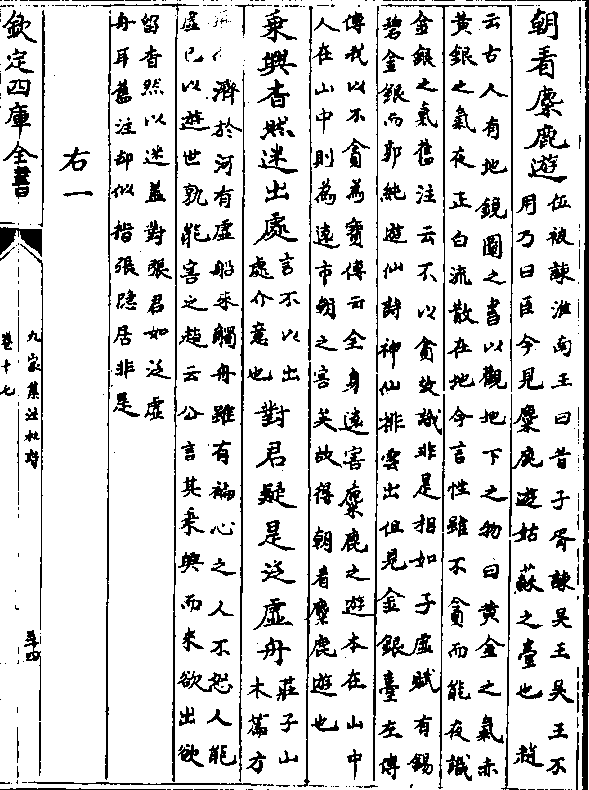 朝看麋鹿遊
伍被諫淮南王曰昔子胥諫吳王吳王不
用乃曰臣今見麋鹿遊姑蘇之臺也 趙
云古人有地鏡圖之書以觀地下之物曰黄金之氣赤
黄銀之氣夜正白流散在地今言性雖不貪而能夜識
金銀之氣舊注云不以貪故識非是相如子虚賦有錫
碧金銀而郭純遊仙詩神仙排雲出但見金銀臺左傳
傳我以不貪為寶傳云全身逺害麋鹿之遊本在山中
人在山中則為逺市朝之害矣故得朝看麋鹿遊也
乗興杳然迷出處
言不以出
處介意也
對君疑是泛虚舟
莊子山
木篇方
濟於河有虚船來觸舟雖有褊心之人不怒人能
虚已以遊世孰能害之趙云公言其乗興而來欲出欲
留杳然以迷蓋對張君如泛虚
舟耳舊注却似指張隠居非是
右一
欽定四庫全書
九家集注杜詩
卷十七